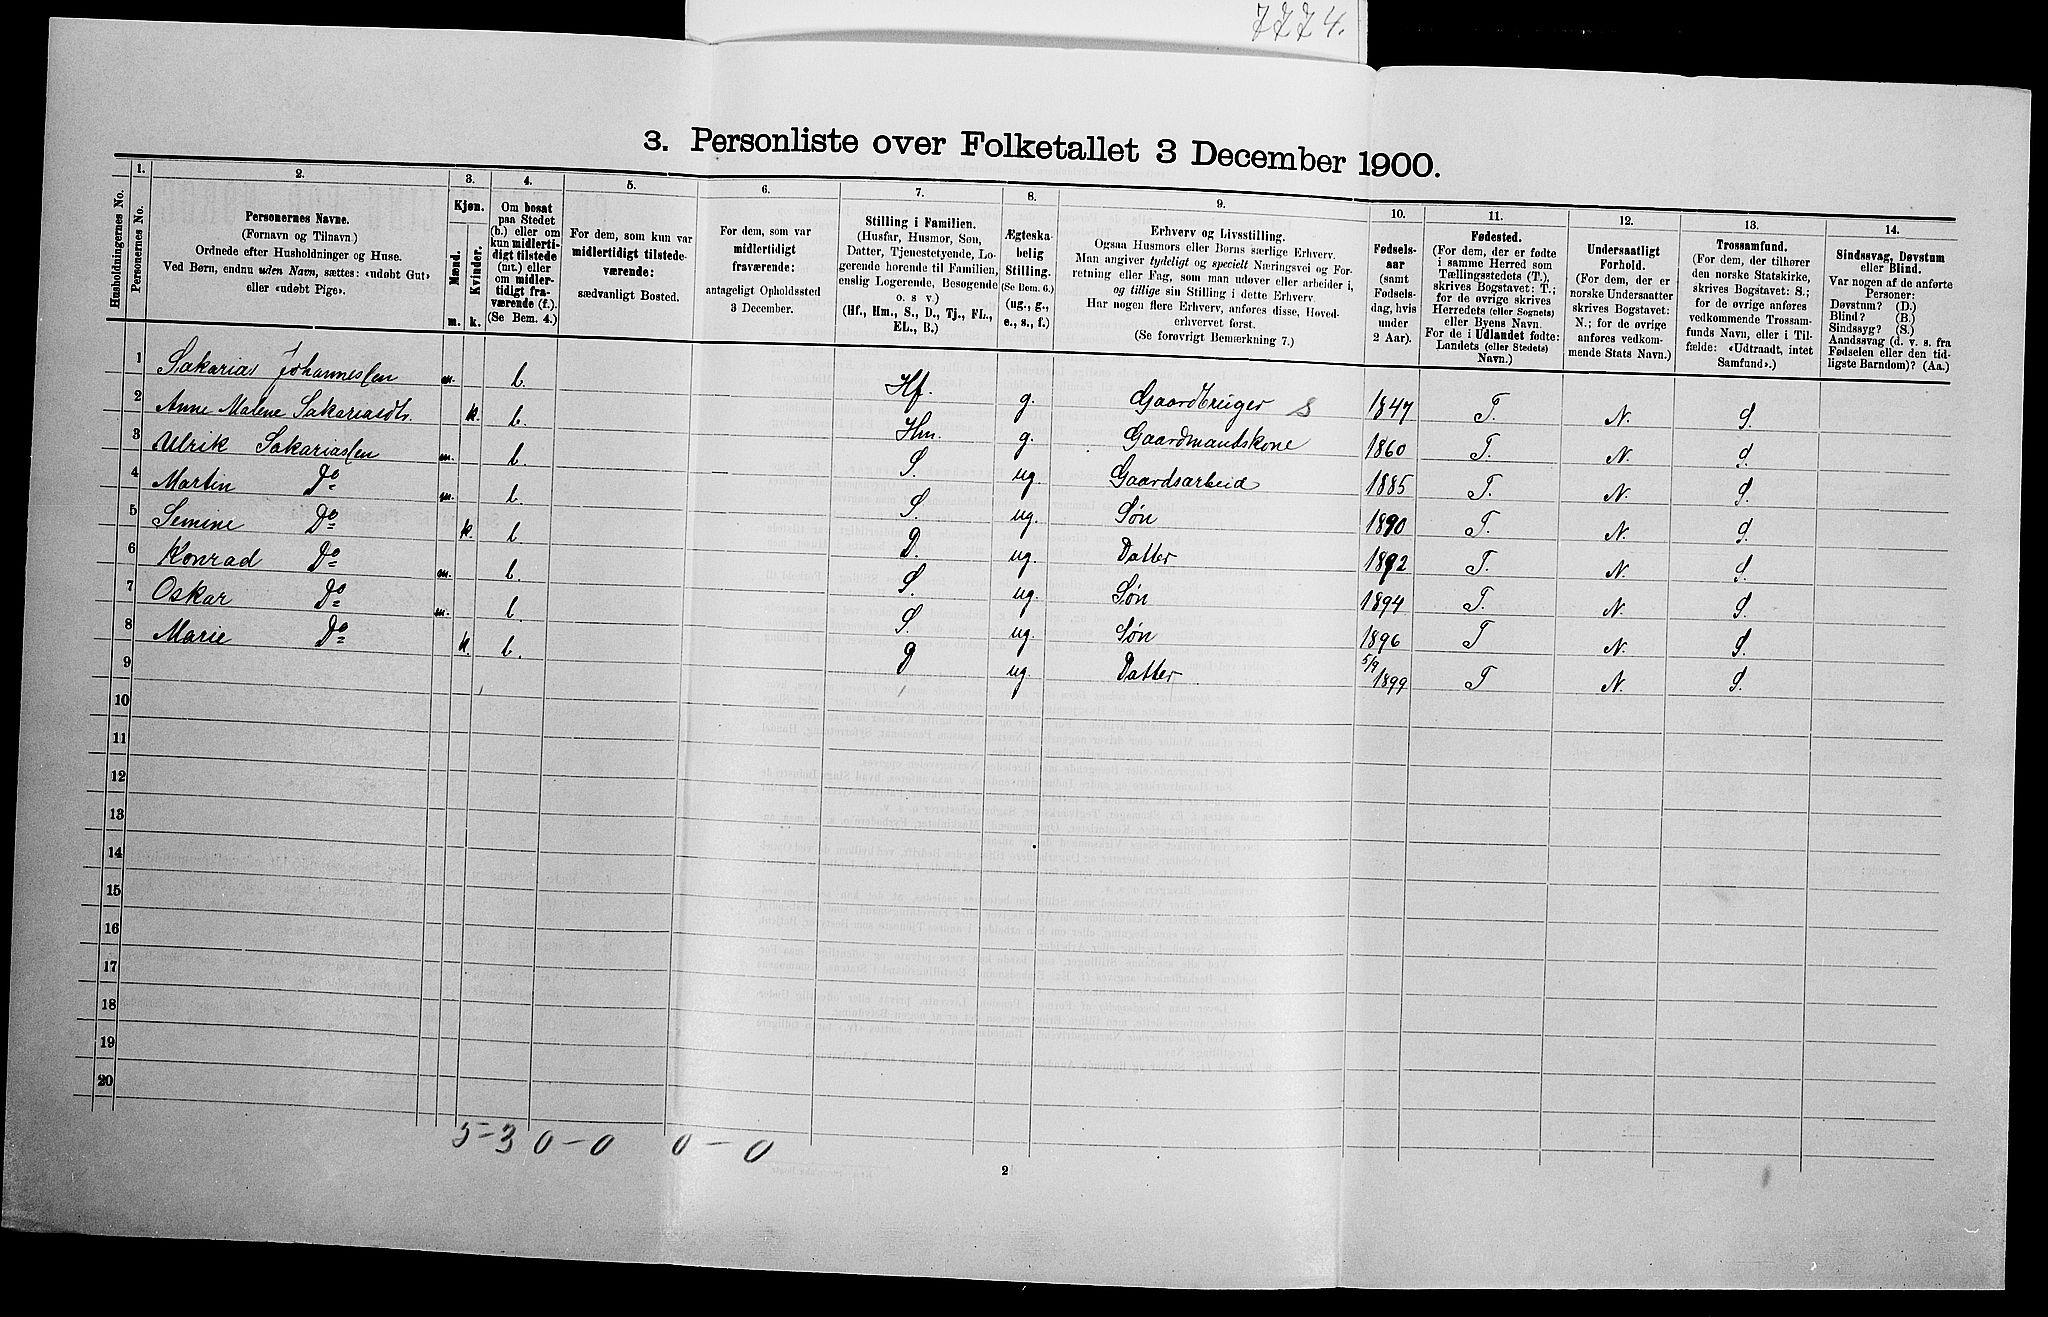 7774.
3. Personliste over Folketallet 3 December 1900.
1. 2. 3. 4. 5. 6. 7. 8. 9. 10. 11. 12. 13. 14.
Husholdningernes No.
Personernes No.
Personernes Navne.
(Fornavn og Tilnavn)
Ordnede efter Husholdninger og Huse.
Ved Børn, endnu uden Navn, sættes: «udøbt Gut»
eller «udøbt Pige».
Kjøn.
Mænd.
Kvinder.
m. k.
Om bosat
paa Stedet
(b.) eller om
kun midlerti-
digt tilstede
(mt.) eller
om midler-
tidigt fra-
værende (f.).
(Se Bem. 4.)
For dem, som kun var
midlertidigt tilstede-
værende:
sædvanligt Bosted.
For dem, som var
midlertidigt
fraværende:
antageligt Opholdssted
3 December.
Stilling i Familien.
(Husfar, Husmor, Søn,
Datter, Tjenestetyende, Lo-
gerende hørende til Familien,
enslig Logerende, Besøgende
o. s v.)
(Hf., Hm., S., D., Tj., FL.,
EL., B.)
Ægteska-
belig
Stilling.
(Se Bem. 6.)
(ug., g.,
e., s., f.)
Erhverv og Livsstilling.
Ogsaa Husmors eller Børns særlige Erhverv.
Man angiver tydeligt og specielt Næringsvei og For-
retning eller Fag, som man udøver eller arbeider i,
og tillige sin Stilling i dette Erhverv.
Har nogen flere Erhverv, anføres disse, Hoved-
erhvervet først.
(Se forøvrigt Bemærkning 7.)
Fødsels-
aar
(samt
Fødsels-
dag, hvis
under
2 Aar).
Fødested.
(For dem, der er fødte
i samme Herred som
Tællingsstedets (T.),
skrives Bogstavet: T.;
for de øvrige skrives
Herredets (eller Sognets)
eller Byens Navn.
For de i Udlandet fødte:
Landets (eller Stedets)
Navn.)
Undersaatligt
Forhold.
(For dem, der er
norske Undersaatter
skrives Bogstavet:
N.; for de øvrige
anføres vedkom-
mende Stats Navn.)
Trossamfund.
(For dem, der tilhører
den norske Statskirke,
skrives Bogstavet: S.;
for de øvrige anføres
vedkommende Trossam-
funds Navn, eller i Til-
fælde: «Udtraadt, intet
Samfund».)
Sindssvag, Døvstum
eller Blind.
Var nogen af de anførte
Personer:
Døvstum? (D.)
Blind? (B.)
Sindssyg? (S.)
Aandssvag (d. v. s. fra
Fødselen eller den tid-
ligste Barndom)? (Aa.)
1 Sakarias Johannessen m. b. Hf. g. Gaardbruger S 1847 T. N. S.
2 Anne Malene Sakariasdtr. k. b. Hm. g. Gaardmandskone 1860 T. N. S.
3 Ulrik Sakariassen m. b. S. ug. Gaardsarbeid 1885 T. N. S.
4 Martin Do m. b. S. ug. Søn 1890 T. N. S.
5 Semine Do k. b. D. ug. Datter 1892 T. N. S.
6 Konrad Do m. b. S. ug. Søn 1894 T. N. S.
7 Oskar Do m. b. S. ug. Søn 1896 T N. S.
8 Marie Do k. b. D ug. Datter 5/9 1899 T N. S.
9
10
11
12
13
14
15
16
17
18
19
20
5-3 0-0 0-0
2